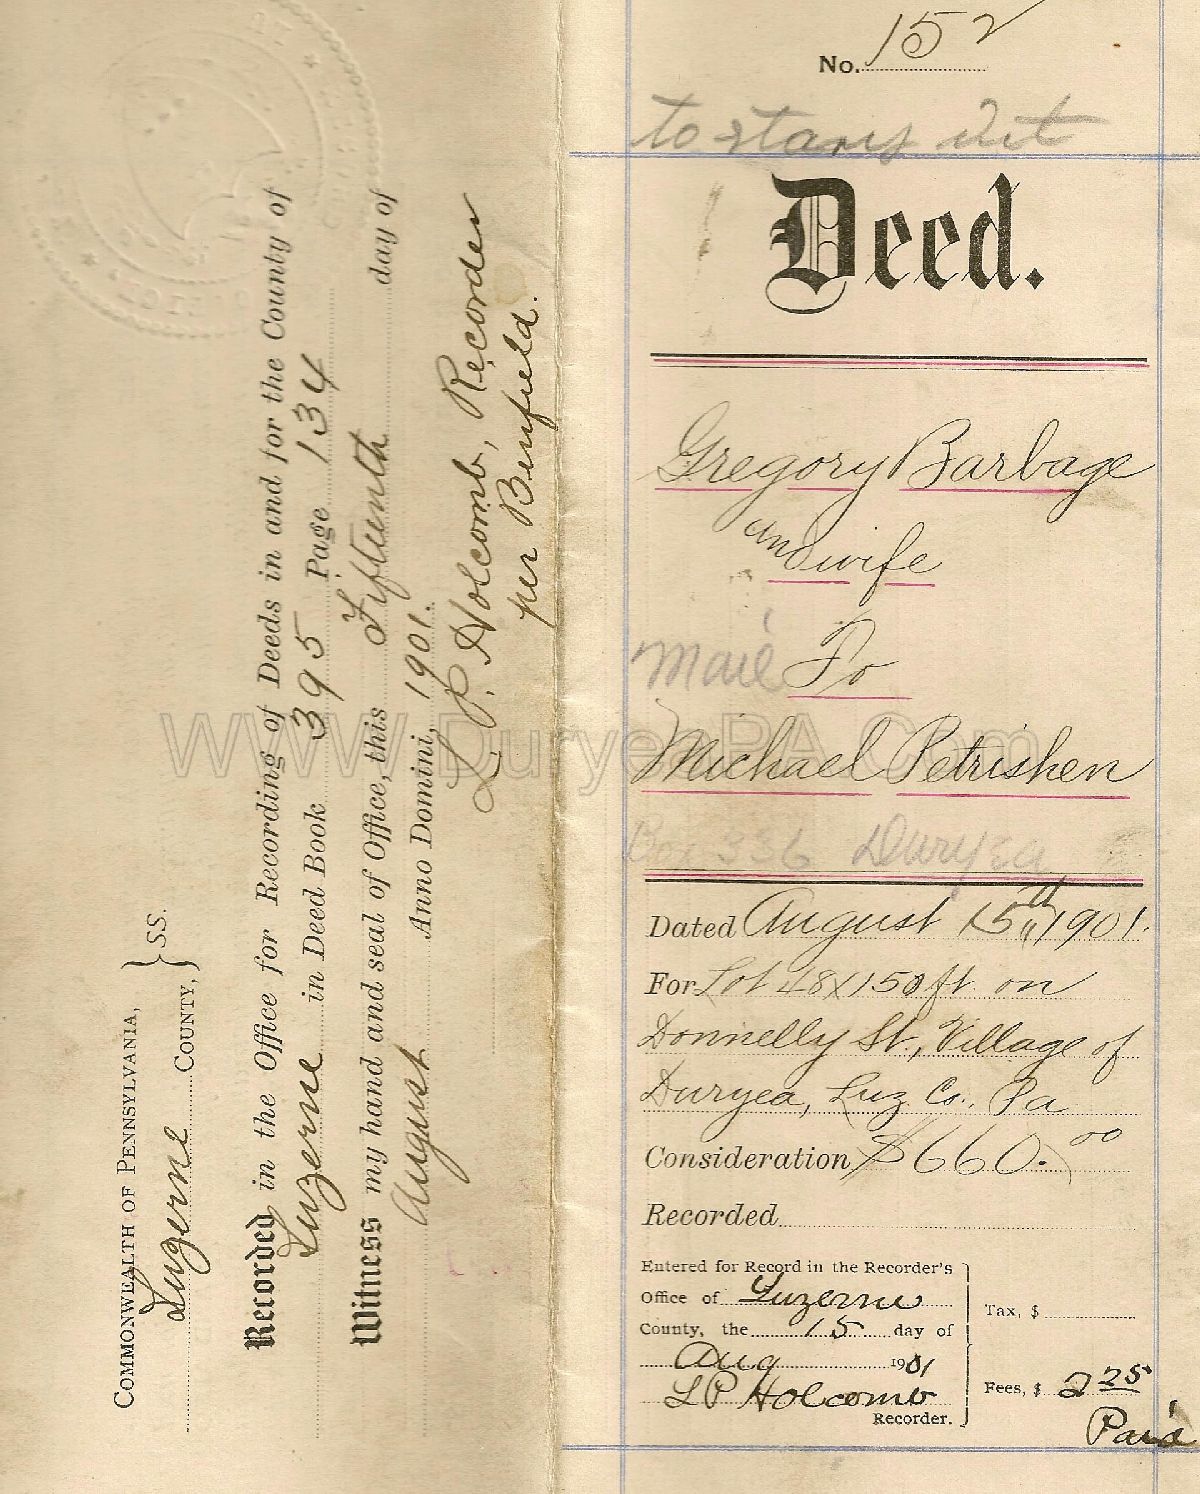 COMMONWEALTH OF PENNSYLVANIA,
Luzerne COUNTY, } SS.
Recorded in the Office for Recording of Deeds in and for the County of
Luzerne in Deed Book 395 Page 134
Witness my hand and seal of Office, this Fifteenth day of
August Anno Domini, 1901.
L. P. Holcomb, Recorder
per Benfield.
No. 152
to
Deed.
Gregory Barbage
and wife
Mail To
Michael Petrishen
Box 336 Duryea
Dated August 15th 1901.
For Lot 48x150 ft on
Donnelly St., Village of
Duryea, Luz Co., Pa
Consideration $660.00
Recorded
Entered for Record in the Recorder's
Office of Luzerne
County, the 15 day of
Aug 1901
L P Holcomb
Recorder.
Tax, $
Fees, $ 2 25
Paid
www.DuryeaPA.Com